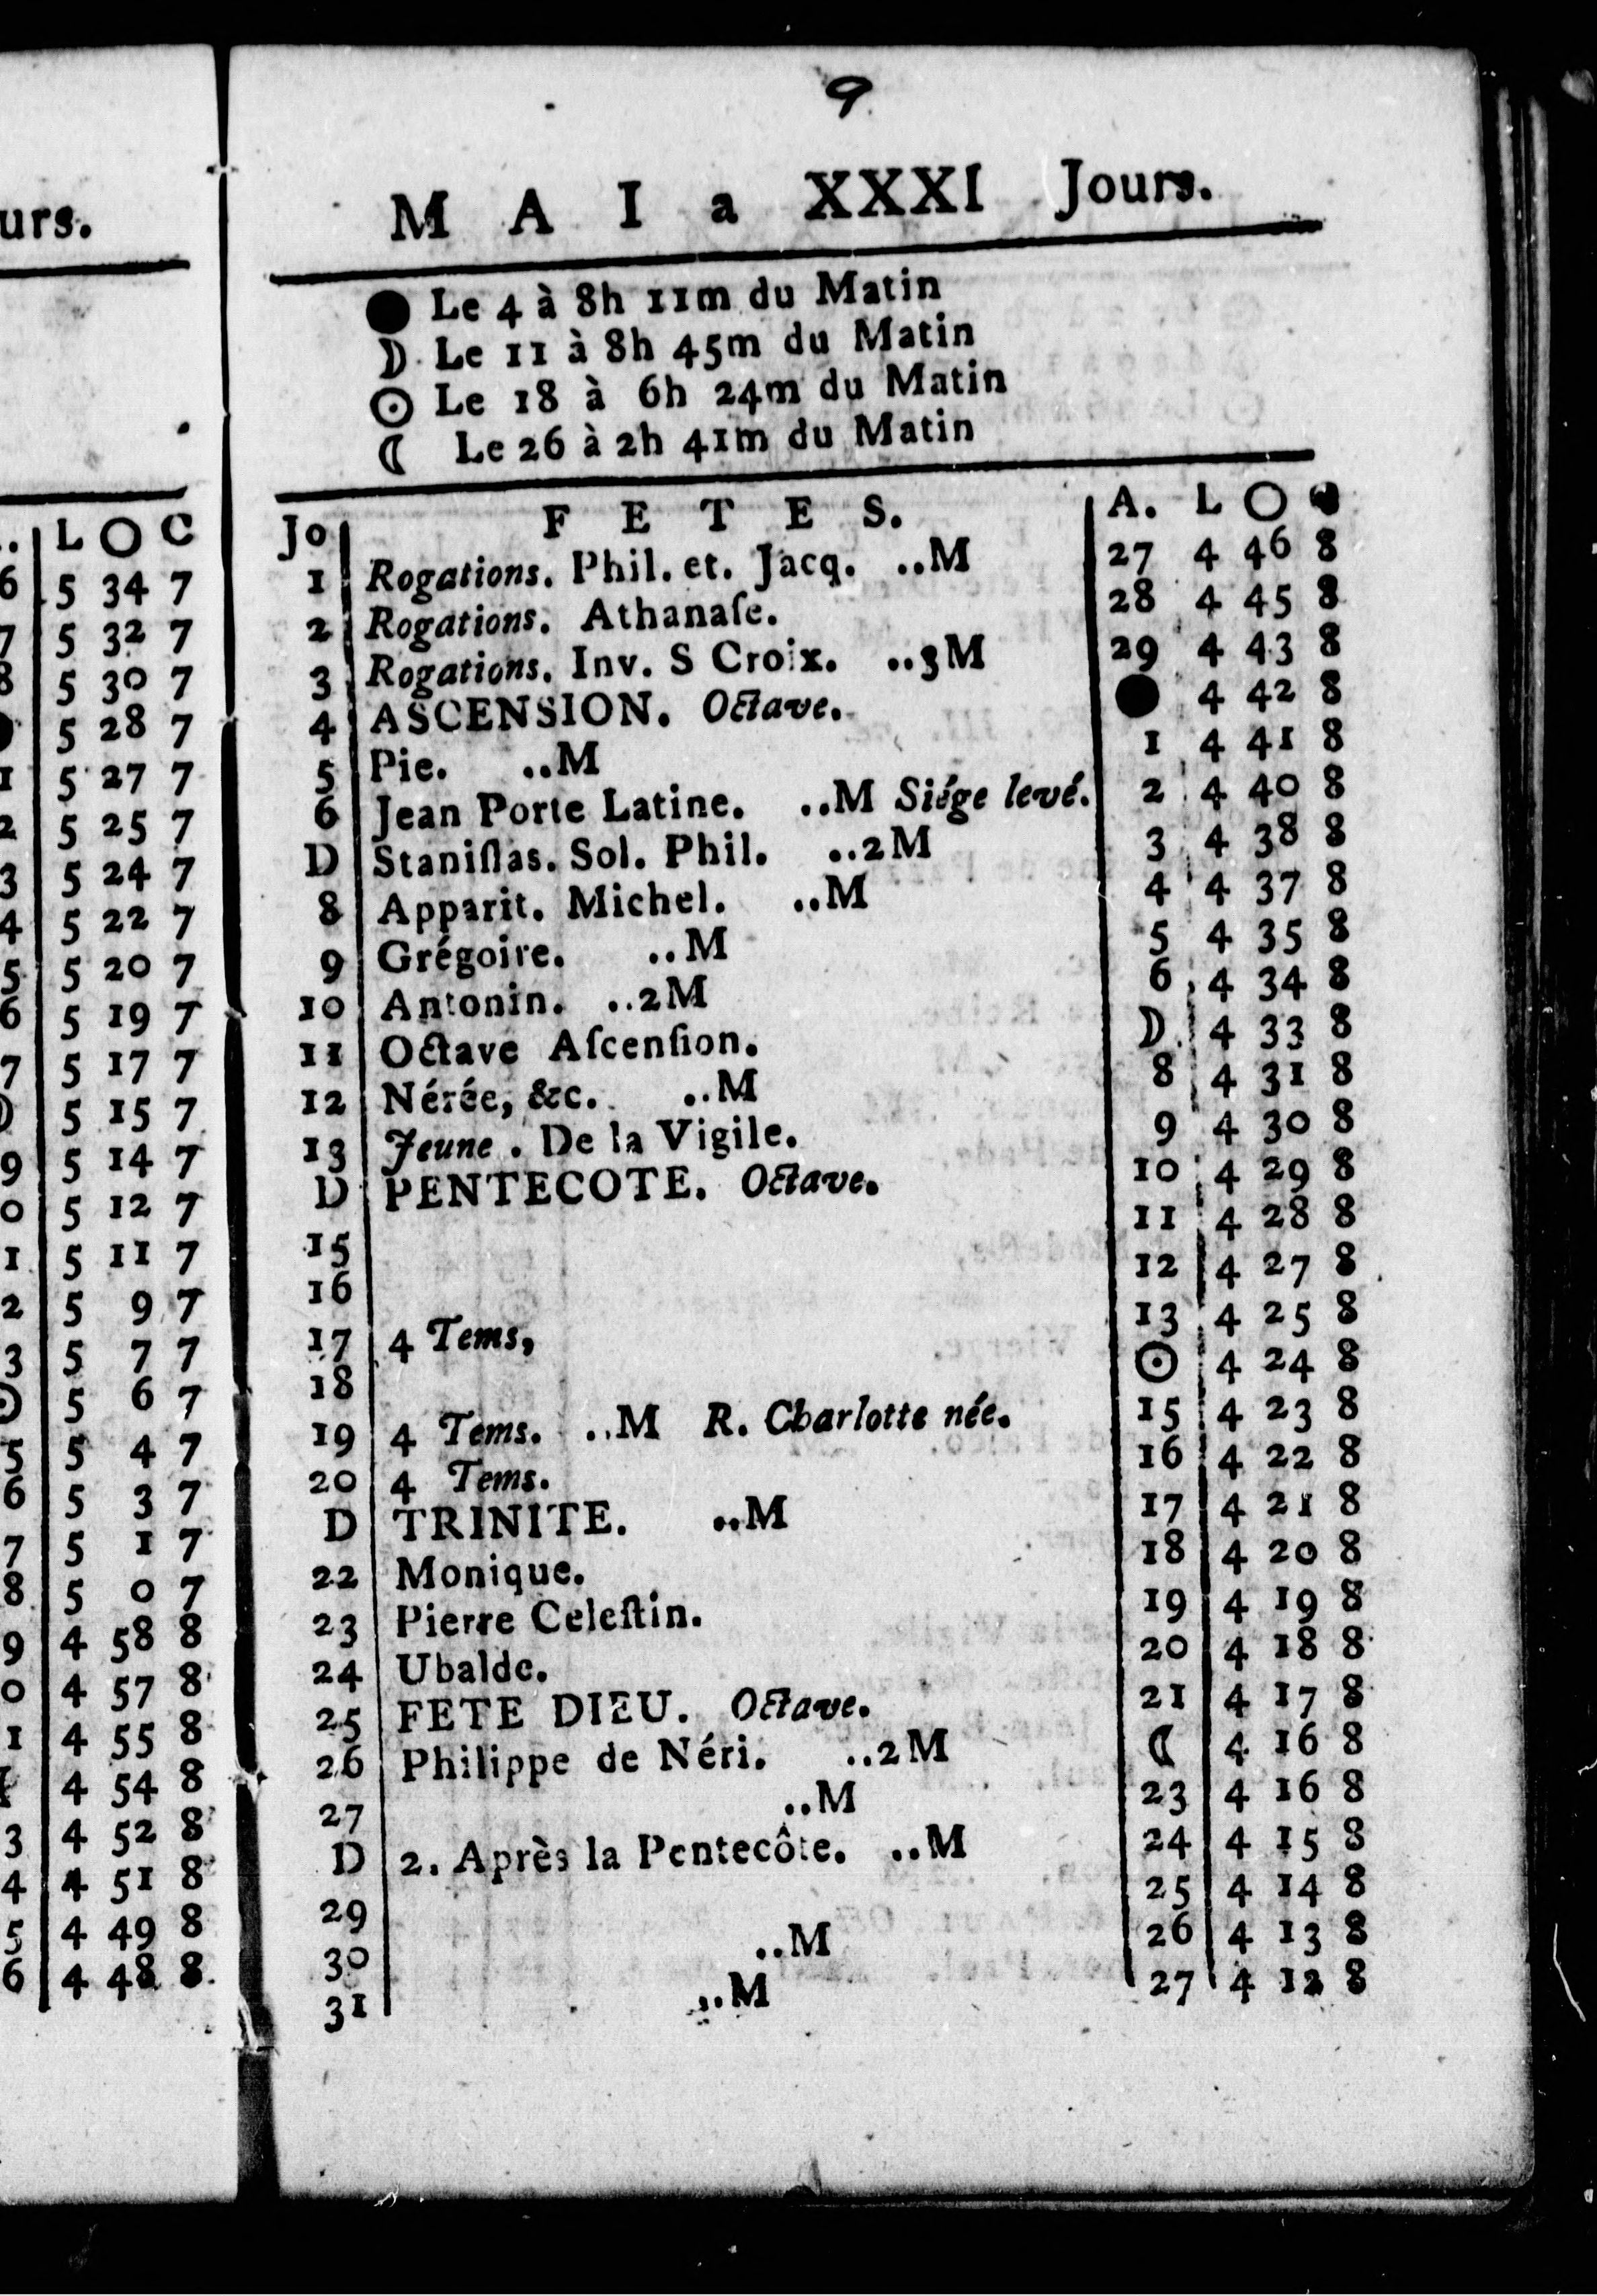 urs.
. L O C
6 5 34 7
7 5 32 7
8 5 30 7
5 28 7
1 5 27 7
2 5 25 7
3 5 24 7
4 5 22 7
5 5 20 7
6 5 19 7
7 5 17 7
5 15 7
9 5 14 7
0 5 12 7
1 5 11 7
2 5 9 7
3 5 7 7
5 6 7
5 5 4 7
6 5 3 7
7 5 1 7
8 5 0 7
9 4 58 8
0 4 57 8
1 4 55 8
4 54 8
3 4 52 8
4 4 51 8
5 4 49 8
6 4 48 8
9
M A I a XXXI Jours.
● Le 4 à 8h 11m du Matin
☽ Le 11 à 8h 45m du Matin
☉ Le 18 à 6h 24m du Matin
☾ Le 26 à 2h 41m du Matin
Jo F E T E S. A. L O ●
1 Rogations. Phil. et. Jacq. ..M 27 4 46 8
2 Rogations. Athanaſe. 28 4 45 8
3 Rogations. Inv. S Croix. ..3M 29 4 43 8
4 ASCENSION. Octave. ● 4 42 8
5 Pie. ..M 1 4 41 8
6 Jean Porte Latine. ..M Siége levé. 2 4 40 8
D Staniſlas. Sol. Phil. ..2M 3 4 38 8
8 Apparit. Michel. ..M 4 4 37 8
9 Grégoire. ..M 5 4 35 8
10 Antonin. ..2M 6 4 34 8
11 Octave Aſcenſion. ☽ 4 33 8
12 Nérée, &c. ..M 8 4 31 8
13 Jeune . De la Vigile. 9 4 30 8
D PENTECOTE. Octave. 10 4 29 8
15 11 4 28 8
16 12 4 27 8
17 4 Tems, 13 4 25 8
18 ☉ 4 24 8
19 4 Tems. ..M R. Charlotte née. 15 4 23 8
20 4 Tems. 16 4 22 8
D TRINITE. ..M 17 4 21 8
22 Monique. 18 4 20 8
23 Pierre Celeſtin. 19 4 19 8
24 Ubalde. 20 4 18 8
25 FETE DIEU. Octave. 21 4 17 8
26 Philippe de Néri. ..2M ☾ 4 16 8
27 ..M 23 4 16 8
D 2. Après la Pentecôte. ..M 24 4 15 8
29 25 4 14 8
30 ..M 26 4 13 8
31 ..M 27 4 12 8